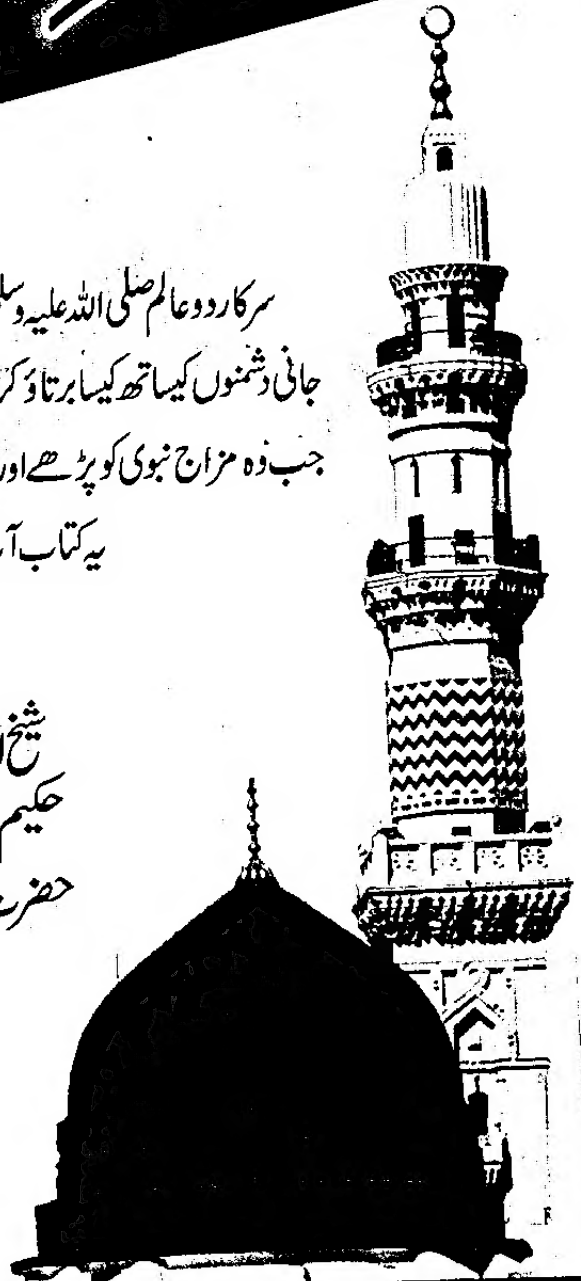 سرکار دو عالم صلی اللہ علیہ وسل
جانی دشمنوں کیساتھ کیسا برتاؤ کر
جب وہ مزاج نبوی کو پڑھے اور
یہ کتاب آ
شیخ ا
حکیم
حضرت